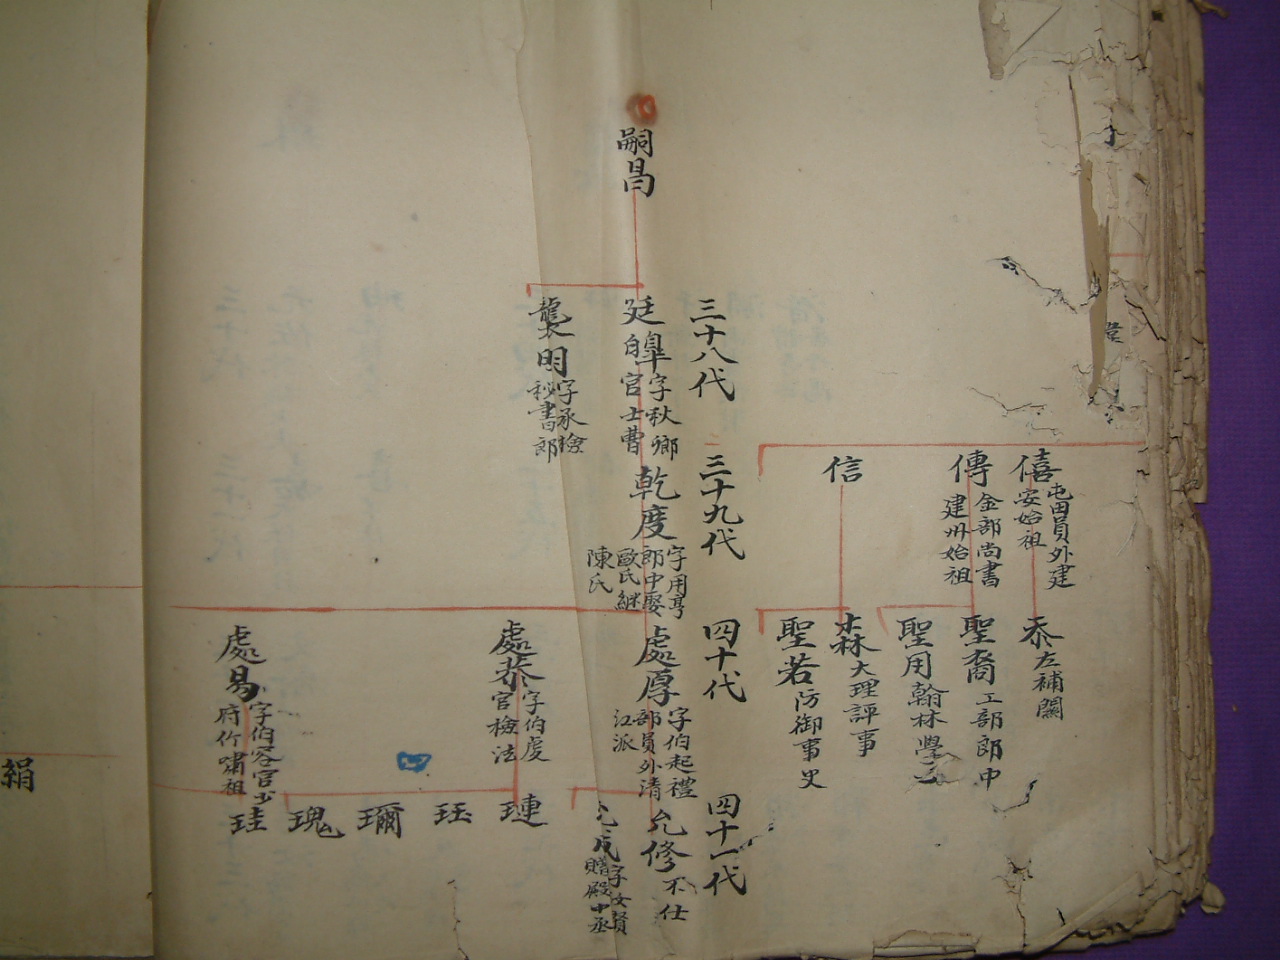 僖
屯田員外建
安始祖
傳
金部尚書
建州始祖
信
忝
左補闕
聖裔
工部郎中
聖用
翰林學
森
大理評事
聖若
防御事史
三十八代
三十九代
四十代
四十一代
嗣昌
廷皥
字秋鄉
官士曹
襲明
字承檢
秘書郎
乾度
字用亨
郎中娶
歐氏継
陳氏
處厚
字伯起禮
部員外清
江派
處恭
字伯虔
官檢法
處易
字伯容官少
府竹嘯祖
允修
不仕
允成
贈殿中丞
璉
珏
璽
瑰
珪
絹